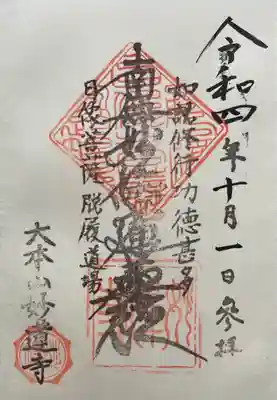 令和四年十月一日参拝
如説修行功徳甚多
南無妙法蓮華経
日像菩薩 脱履道場
大本山妙蓮寺